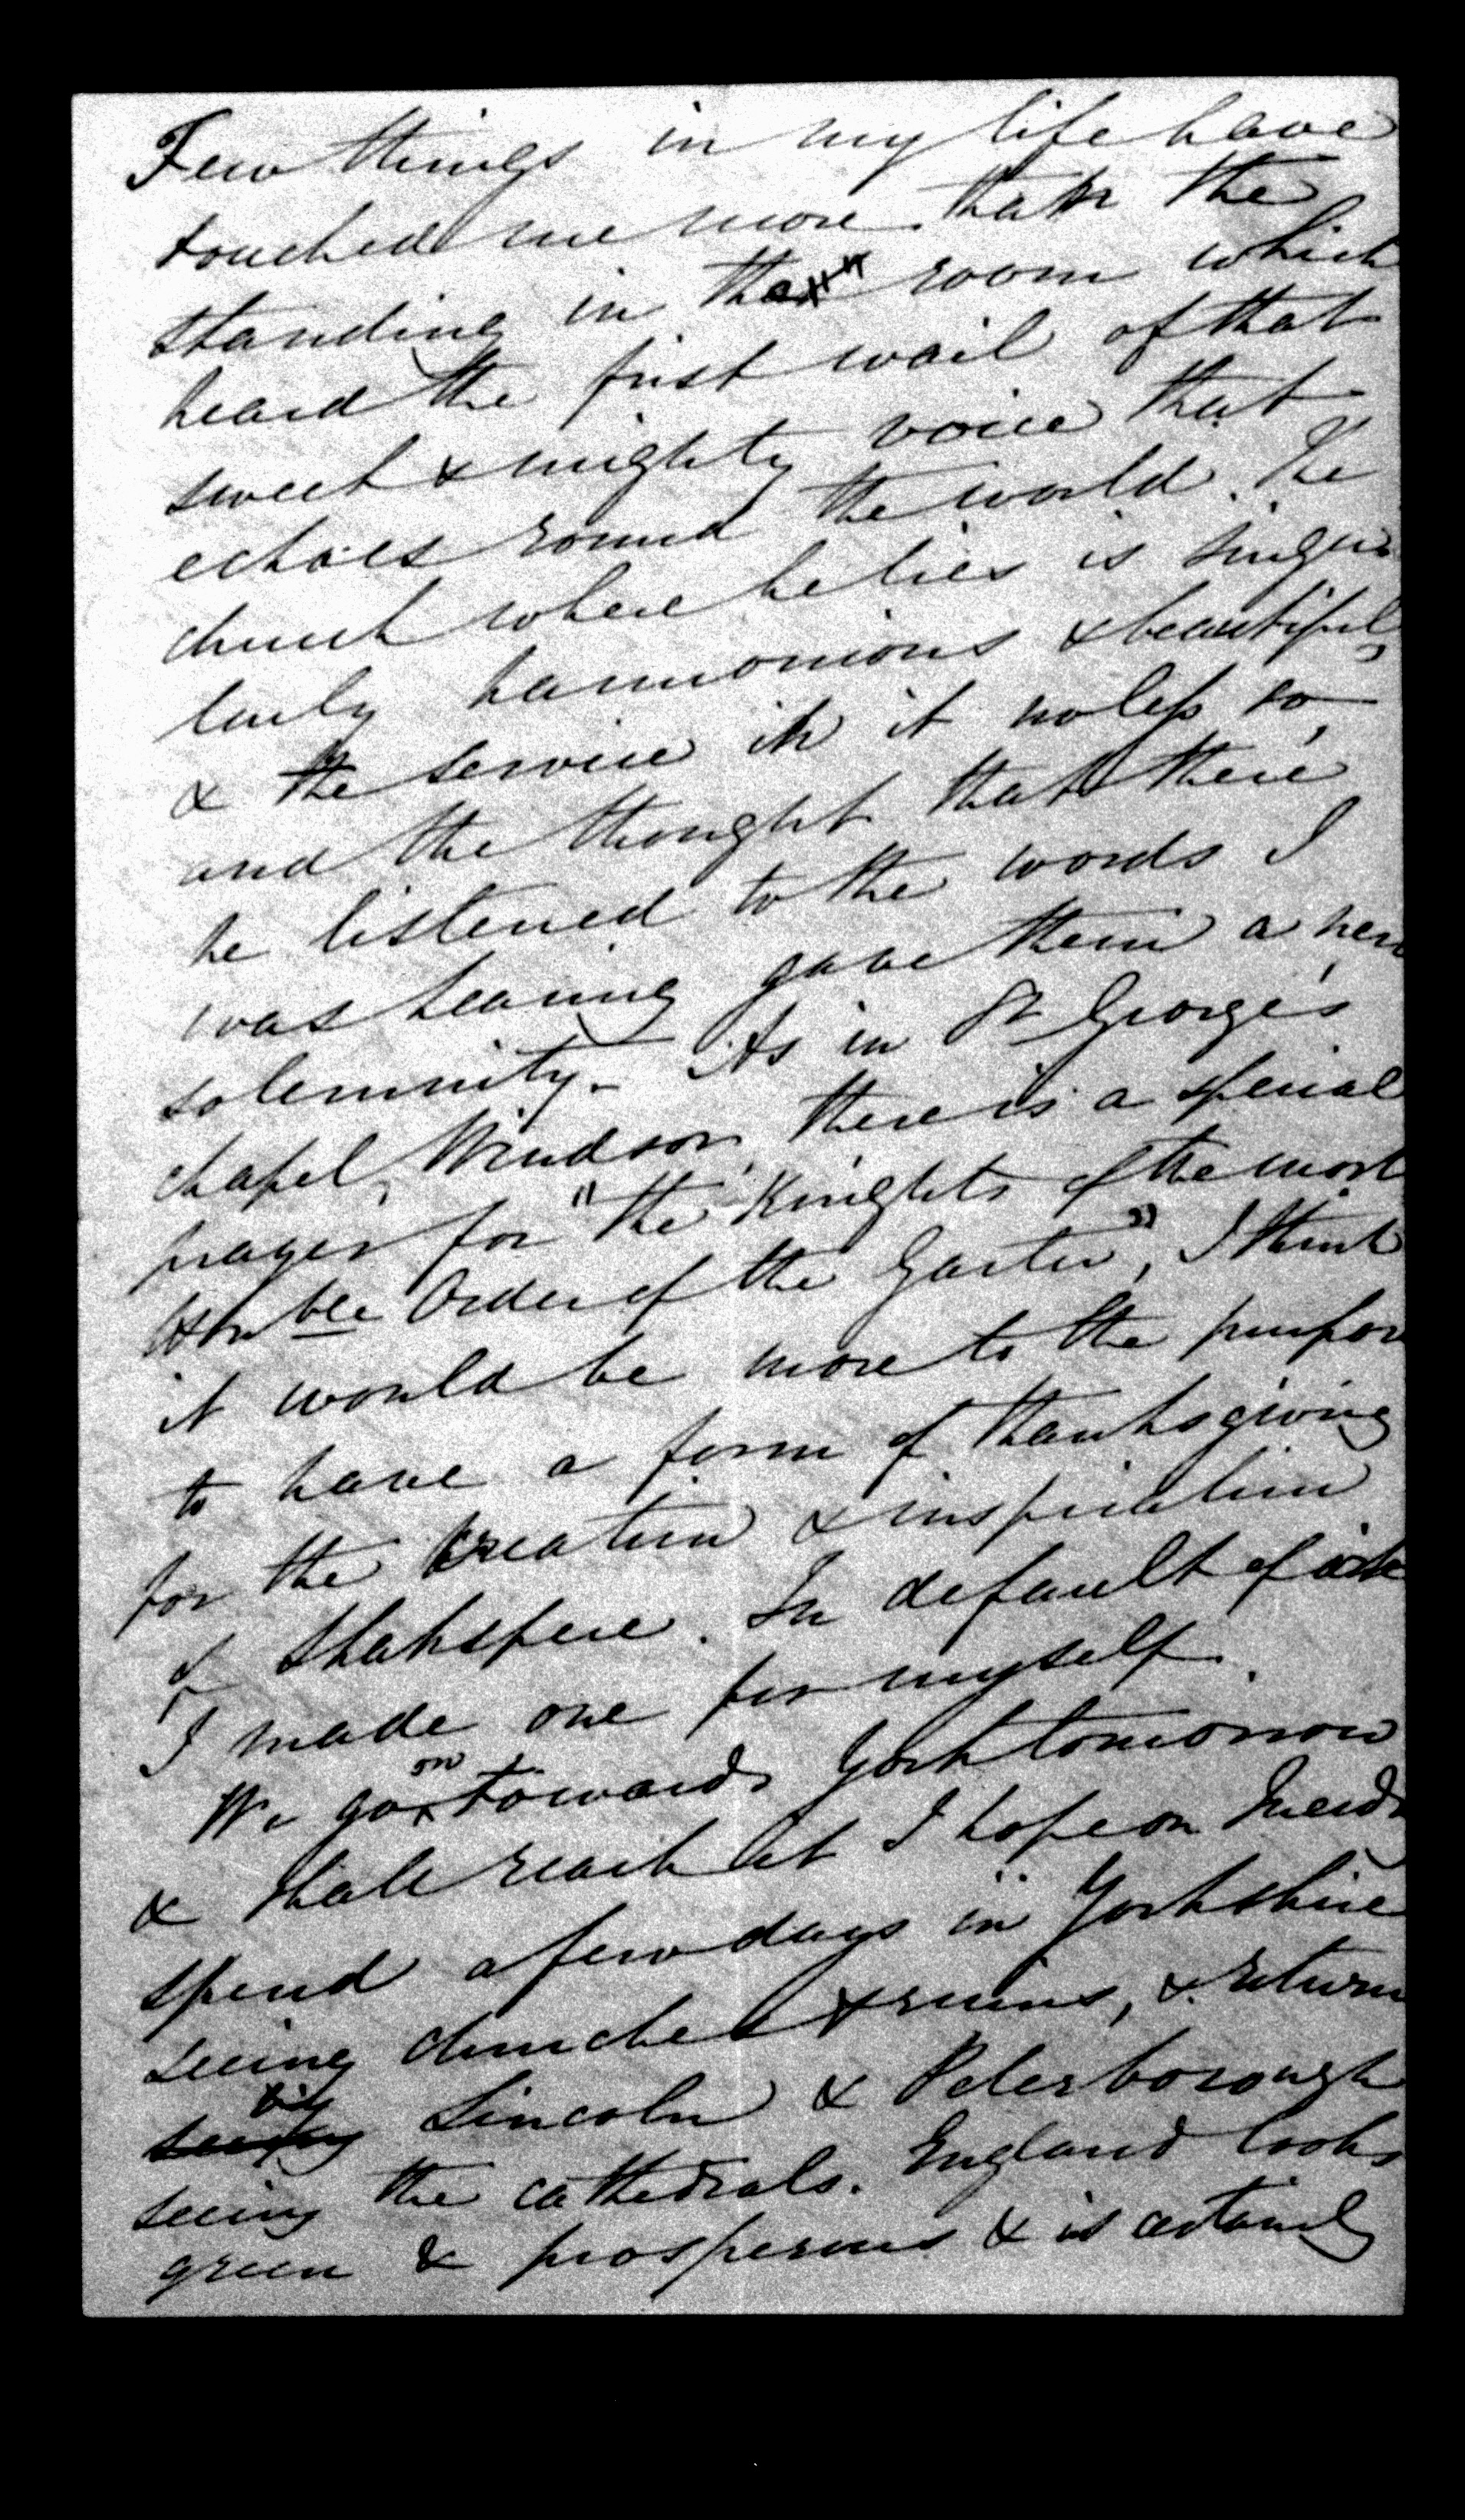 Few things in my life have
touched me more than the
standing in the room which
heard the first wail of that
sweet & mighty voice that
echoes round the world. The
church where he lies is singu
larly harmonious & beautiful,
& the service in it no less so,
and the thought that there
he listened to the words I
was hearing gave them a new
solemnity. As in St George's
Chapel, Windsor, there is a special
prayer for "the Knights of the most
Honble Order of the Garter", I think
it would be more to the purpose
to have a form of thanksgiving
for the creation & inspiration
of Shakspere. In default of
I made one for myself.
We go on towards York tomorrow
& shall reach it I hope on
spend a few days in Yorkshire
seeing churches & ruins, & return
seeing by Lincoln & Peterborough
seeing the cathedrals. England looks
green & prosperous & is certainly